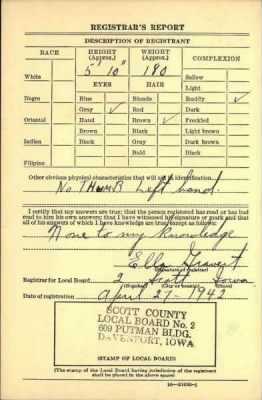 REGISTRAR'S REPORT
DESCRIPTION OF REGISTRANT
RACE HEIGHT (Approx.) WEIGHT (Approx.) COMPLEXION
5' 10" 180
White Sallow
EYES HAIR Light
Negro Blue Blonde Ruddy ✓
Gray ✓ Red Dark
Oriental Hazel Brown ✓ Freckled
Brown Black Light brown
Indian Black Gray Dark brown
Bald Black
Filipino
Other obvious physical characteristics that will aid in identification
No THUMB Left hand.
I certify that my answers are true; that the person registered has read or has had
read to him his own answers; that I have witnessed his signature or mark and that
all of his answers of which I have knowledge are true, except as follows:
None to my knowledge
Ella
(Signature of registrar)
Registrar for Local Board 2 Scott Iowa
(Number) (City or county) (State)
Date of registration April 27-1942
SCOTT COUNTY
LOCAL BOARD No. 2
609 PUTMAN BLDG.
DAVENPORT, IOWA
(STAMP OF LOCAL BOARD)
(The stamp of the Local Board having jurisdiction of the registrant
shall be placed in the above space)